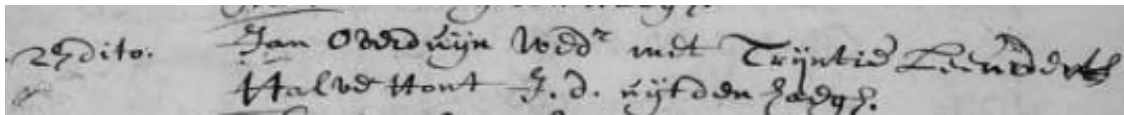 27 dito. Jan Overduijn Wedr met Trijntie Leenderts
Halve Hont J.d. uijt den haegh.